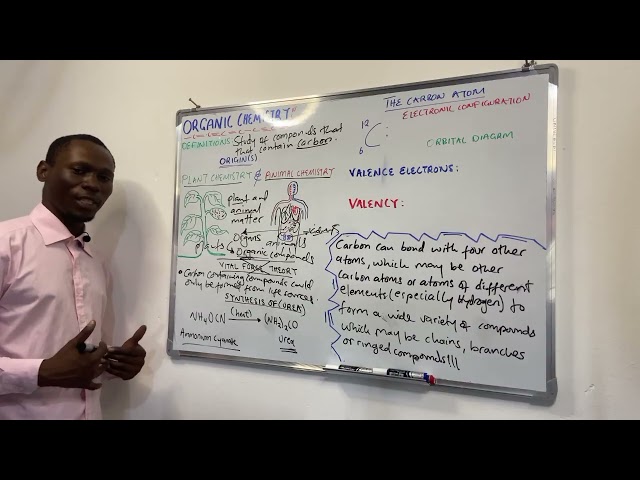 ORGANIC CHEMISTRY
DEFINITION: Study of compounds that
that contain carbon.
ORIGIN(S)
PLANT CHEMISTRY & ANIMAL CHEMISTRY
plant and
animal
matter
Organs
plants animals
Organic compounds
VITAL FORCE THEORY
• Carbon containing compounds could
only be formed from life sources.
SYNTHESIS OF (UREA)
NH4OCN (heat) → (NH2)2CO
Ammonium Cyanate Urea
THE CARBON ATOM
12 C : ELECTRONIC CONFIGURATION
6
ORBITAL DIAGRAM
VALENCE ELECTRONS:
VALENCY:
Carbon can bond with four other
atoms, which may be other
Carbon atoms or atoms of different
elements (especially hydrogen) to
form a wide variety of compounds
which may be chains, branches
or ringed compounds!!!